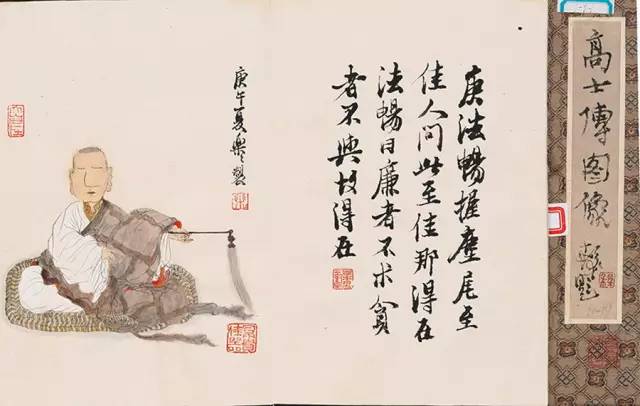 高士傳图像
庚法暢握麈尾至
佳人问此至佳那得在
法暢曰廉者不求貪
者不與故得在
庚午夏樂製